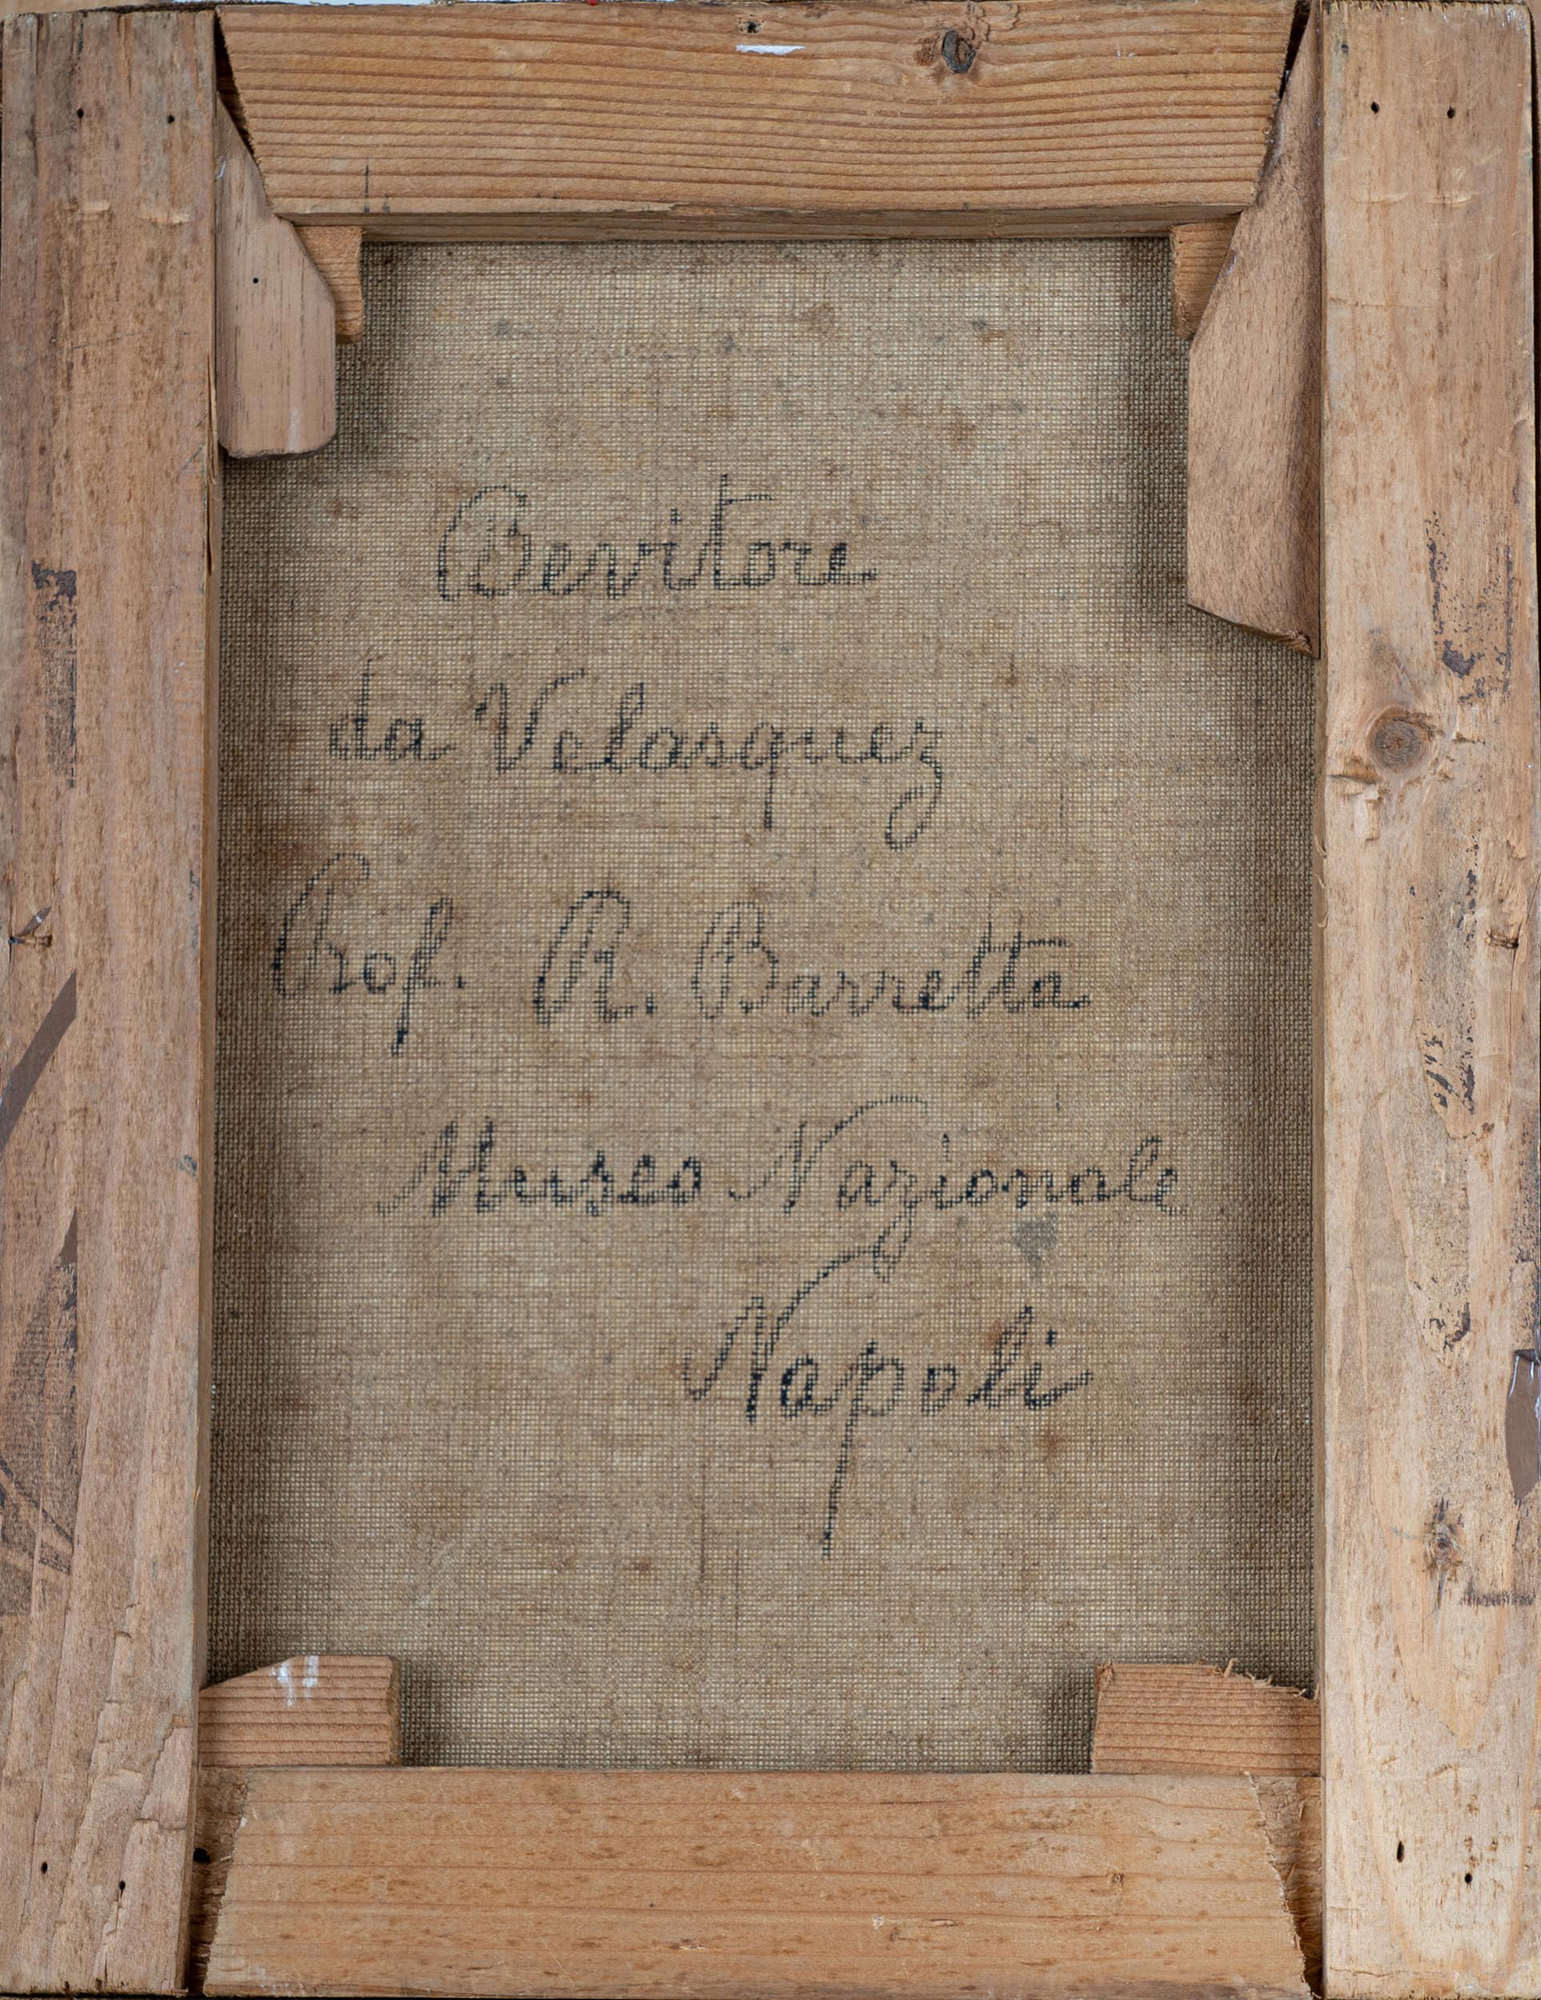 Bevitore
da Velasquez
Prof. R. Barretta
Museo Nazionale
Napoli